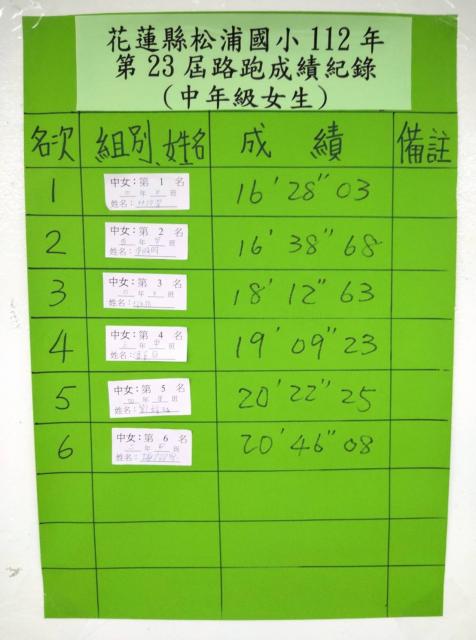 花蓮縣松浦國小112年
第23屆路跑成績紀錄
(中年級女生)
名次 組別、姓名 成績 備註
1 中女:第 1 名 16'28"03
年 班
姓名:
2 中女:第 2 名 16'38"68
年 班
姓名:
3 中女:第 3 名 18'12"63
年 班
姓名:
4 中女:第 4 名 19'09"23
年 班
姓名:
5 中女:第 5 名 20'22"25
年 班
姓名:
6 中女:第 6 名 20'46"08
年 班
姓名: